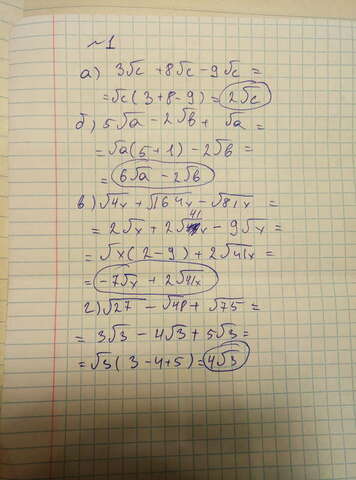 №1
а) 3√c + 8√c - 9√c =
= √c (3+8-9) = 2√c
б) 5√a - 2√в + √a =
= √a(5+1) - 2√в =
= 6√a - 2√в
в) √4x + √164x - √81x =
= 2√x + 2√41x - 9√x =
= √x(2-9) + 2√41x =
= -7√x + 2√41x
г) √27 - √48 + √75 =
= 3√3 - 4√3 + 5√3 =
= √3(3-4+5) = 4√3